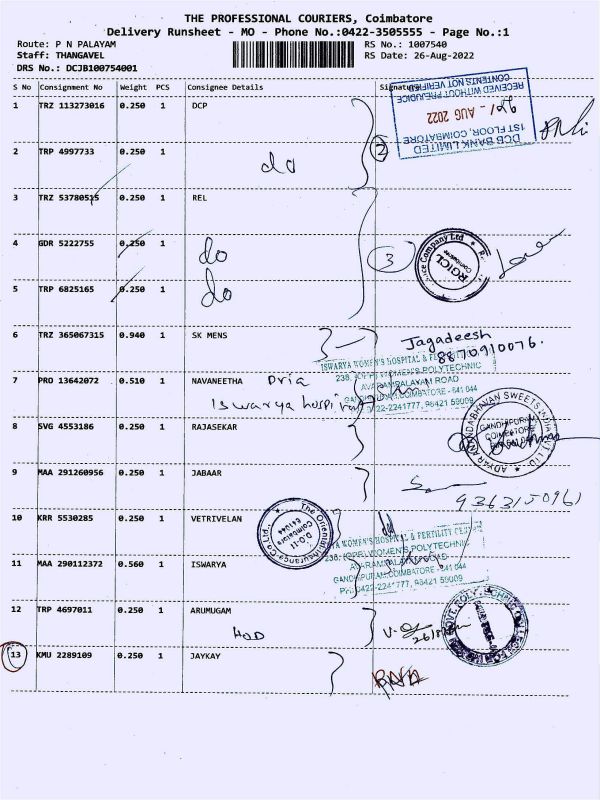 THE PROFESSIONAL COURIERS, Coimbatore
Delivery Runsheet - MO - Phone No.:0422-3505555 - Page No.:1
Route: P N PALAYAM RS No.: 1007540
Staff: THANGAVEL RS Date: 26-Aug-2022
DRS No.: DCJB100754001
S No Consignment No Weight PCS Consignee Details Signature
1 TRZ 113273016 0.250 1 DCP
DCB BANK LIMITED
1ST FLOOR, COIMBATORE
AUG 2022
RECEIVED WITHOUT PREJUDICE
CONTENTS NOT VERIFIED
2
2 TRP 4997733 0.250 1 do
3 TRZ 53780515 0.250 1 REL
4 GDR 5222755 0.250 1 do
3
RGICL
Coimbatore
5 TRP 6825165 0.250 1 do
6 TRZ 365067315 0.940 1 SK MENS
Jagadeesh
8870910076.
ISWARYA WOMEN'S HOSPITAL & FERTILITY
236, (OPP) WOMEN'S POLYTECHNIC
AVARAMPALAYAM ROAD
GANDHIPURAM, COIMBATORE - 641 044
0422-2241777, 96421 59009
7 PRO 13642072 0.510 1 NAVANEETHA Dria
Iswarya hospital
8 SVG 4553186 0.250 1 RAJASEKAR
ADYAR ANANDABHAVAN SWEETS INDIA PVT. LTD.
GANDHIPURAM
COIMBATORE
9 MAA 291260956 0.250 1 JABAAR
9363150961
10 KRR 5530285 0.250 1 VETRIVELAN
The Oriental Insurance Co Ltd.,
D.O-II
Coimbatore
641044
11 MAA 290112372 0.560 1 ISWARYA
WOMEN'S HOSPITAL & FERTILITY CENTRE
236, (OPP) WOMEN'S POLYTECHNIC
AVARAMPALAYAM ROAD
GANDHIPURAM, COIMBATORE - 641 044
Ph: 0422-2241777, 96421 59009
12 TRP 4697011 0.250 1 ARUMUGAM
HOD
13 KMU 2289109 0.250 1 JAYKAY